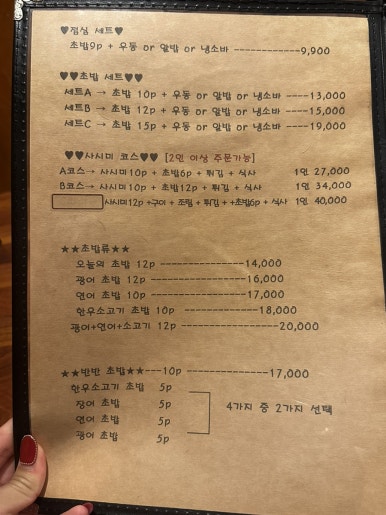 ♥점심 세트♥
초밥9p + 우동 or 알밥 or 냉소바 -------------9,900
♥♥초밥 세트♥♥
세트A → 초밥 10p + 우동 or 알밥 or 냉소바 ----13,000
세트B → 초밥 12p + 우동 or 알밥 or 냉소바 -----15,000
세트C → 초밥 15p + 우동 or 알밥 or 냉소바 -----19,000
♥♥사시미 코스♥♥ [2인 이상 주문가능]
A코스→ 사시미10p + 초밥6p + 튀김 + 식사 1인 27,000
B코스→ 사시미10p + 초밥12p + 튀김 + 식사 1인 34,000
사시미12p +구이 + 조림 + 튀김 + +초밥6p + 식사 1인 40,000
★★초밥류★★
오늘의 초밥 12p ---------------14,000
광어 초밥 12p -----------------16,000
연어 초밥 10p -----------------17,000
한우소고기 초밥 10p --------------18,000
광어+연어+소고기 12p ---------------20,000
★★반반 초밥★★---10p --------------17,000
한우소고기 초밥 5p
장어 초밥 5p
4가지 중 2가지 선택
연어 초밥 5p
광어 초밥 5p